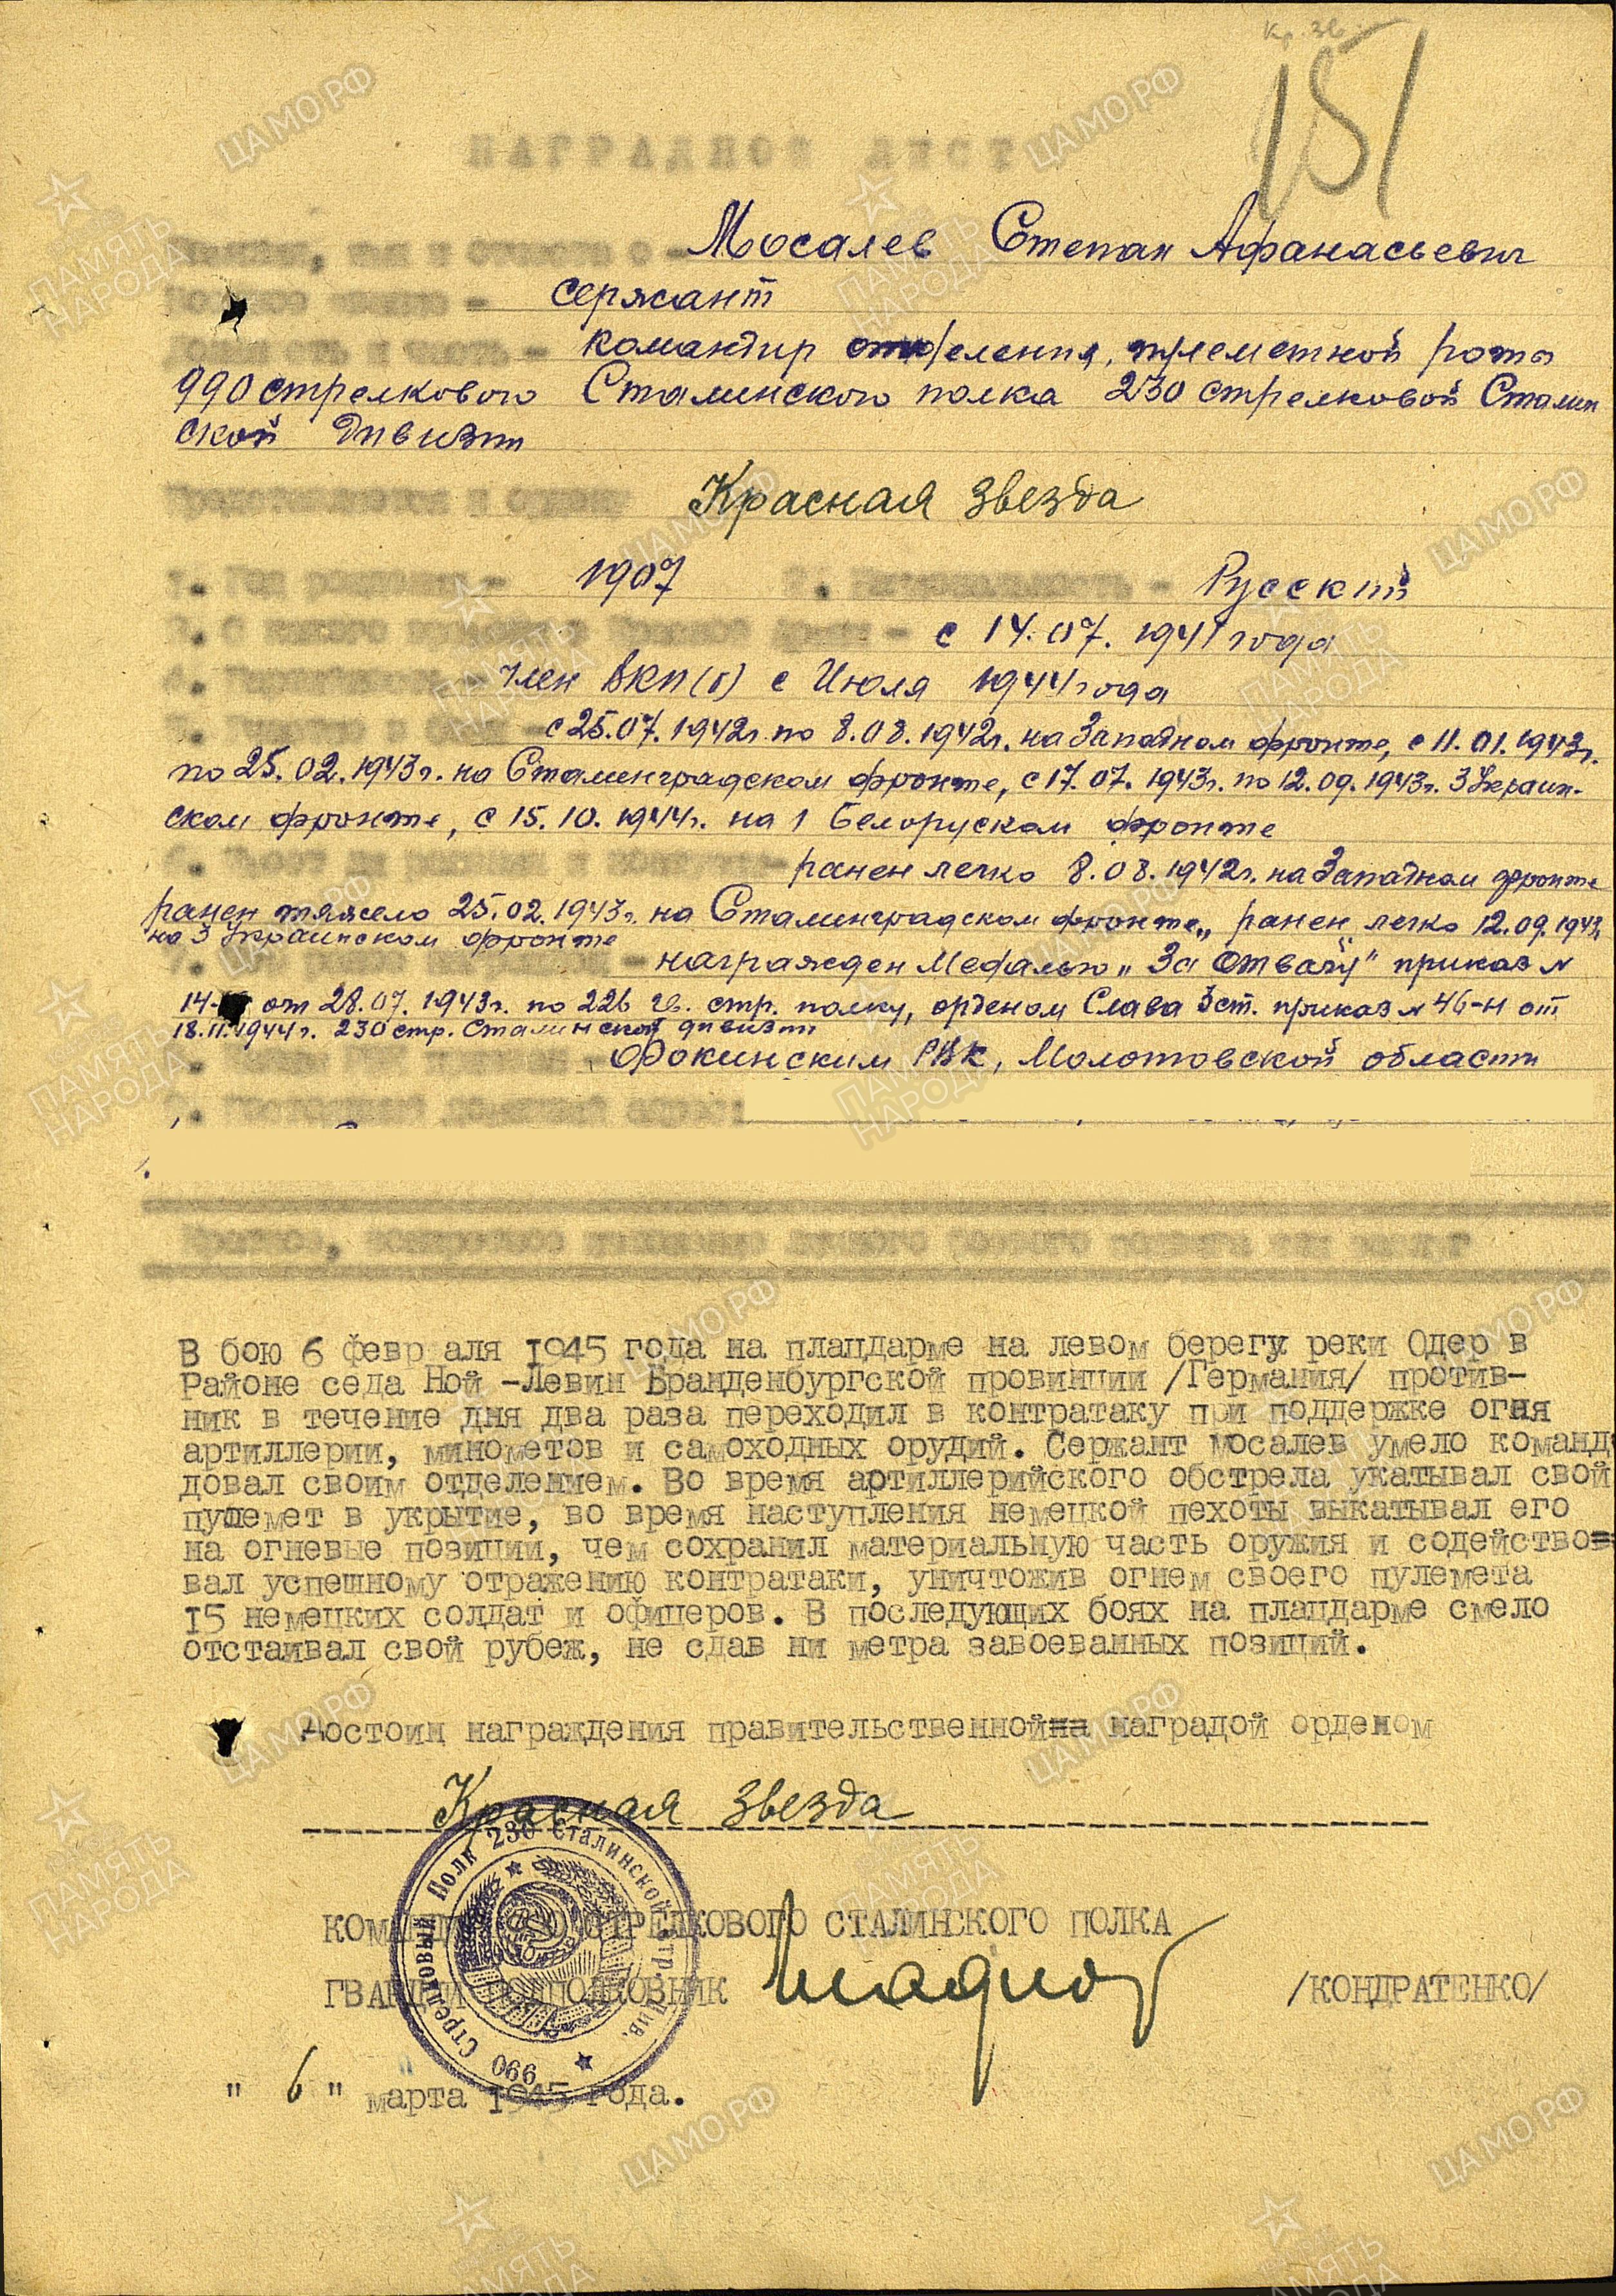 Кр. Зв.
151
НАГРАДНОЙ ЛИСТ
Фамилия, имя и отчество - Мосалев Степан Афанасьевич
звание - сержант
Должность и часть - командир отделения, пулеметной роты
990 стрелкового Сталинского полка 230 стрелковой Сталин
ской дивизии
Представляется к ордену Красная звезда
1. Год рождения - 1907 2. Национальность - Русский
3. С какого времени в Красной Армии - с 14.07.1941 года
4. Партийность - член ВКП(б) с Июля 1944 года
5. Участие в боях - с 25.07.1942г. по 8.08.1942г. на Западном фронте, с 11.01.1943г.
по 25.02.1943г. на Сталинградском фронте, с 17.07.1943г. по 12.09.1943г. 3 Украин-
ском фронте, с 15.10.1944г. на 1 Белоруском фронте
6. Имеет ли ранения и контузии - ранен легко 8.08.1942г. на Западном фронте
ранен тяжело 25.02.1943г. на Сталинградском фронте,, ранен легко 12.09.1943г.
на 3 Украинском фронте
7. награжден Медалью „За Отвагу" приказ №
14- от 28.07.1943г. по 226 гв. стр. полку, орденом Слава 3 ст. приказ № 46-н от
18.11.1944г. 230 стр. Сталинской дивизии
Фокинским РВК, Молотовской области
9. Постоянный домашний адрес:
Краткое, конкретное изложение личного боевого подвига или заслуг
В бою 6 февраля 1945 года на плацдарме на левом берегу реки Одер в
Районе села Ной -Левин Бранденбургской провинции /Германия/ против-
ник в течение дня два раза переходил в контратаку при поддержке огня
артиллерии, минометов и самоходных орудий. Сержант мосалев умело команд
довал своим отделением. Во время артиллерийского обстрела укатывал свой
пулемет в укрытие, во время наступления немецкой пехоты выкатывал его
на огневые позиции, чем сохранил материальную часть оружия и содейство-
вал успешному отражению контратаки, уничтожив огнем своего пулемета
15 немецких солдат и офицеров. В последующих боях на плацдарме смело
отстаивал свой рубеж, не сдав ни метра завоеванных позиций.
Достоин награждения правительственнойна наградой орденом
Красная звезда
990 Стрелковый Полк 230 Сталинской Стр. Див.
КОМАНДИР СТРЕЛКОВОГО СТАЛИНСКОГО ПОЛКА
ГВАРДИИ ПОДПОЛКОВНИК /КОНДРАТЕНКО/
" 6 " марта 1945 года.
ЦАМО.РФ
ПАМЯТЬ НАРОДА